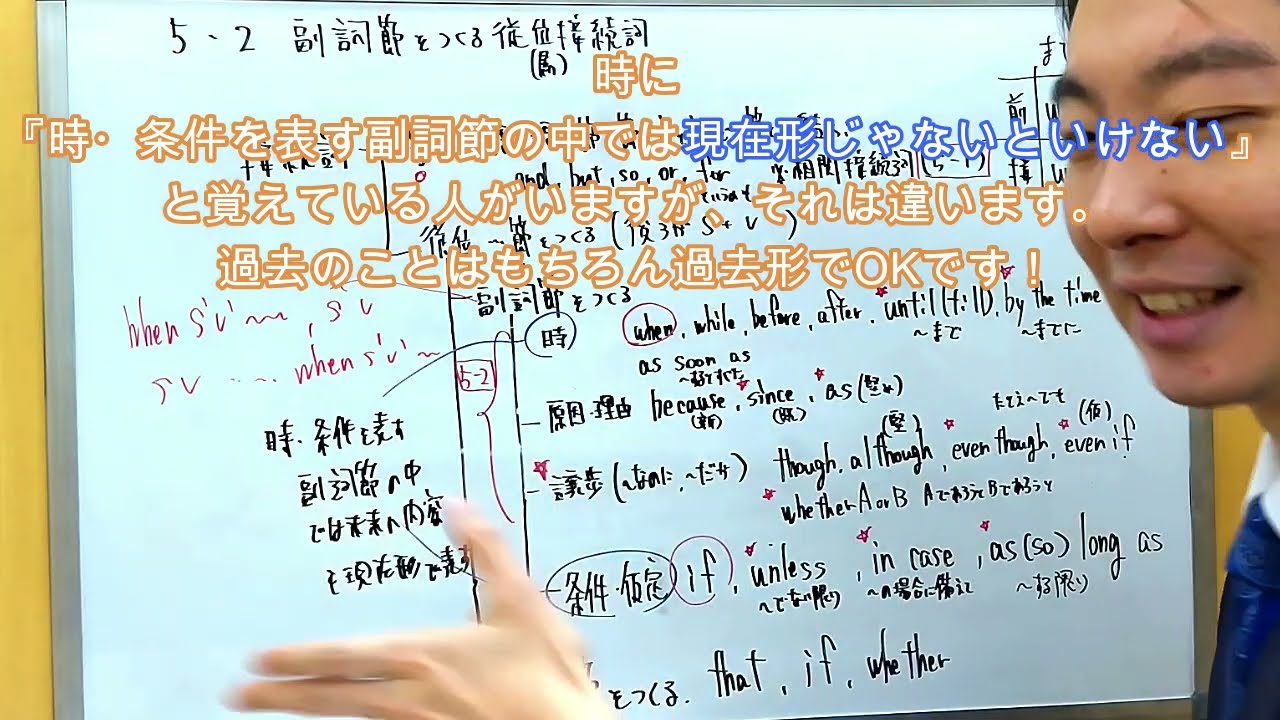 5-2 副詞節をつくる従位接続詞
(属)
時に
『時・条件を表す副詞節の中では現在形じゃないといけない』
と覚えている人がいますが、それは違います。
過去のことはもちろん過去形でOKです！
まで
前
接
and, but, so, or, for ※相関接続詞 5-1
従位 〜節をつくる (後ろが S+V)
副詞節をつくる
when s'v' 〜 , s v
s v ... when s'v' 〜
時 when, while, before, after, until (till), by the time
〜まで 〜までに
as soon as
5-2
原因・理由 because, since, as (堅め)
(新) (既)
時・条件を表す
副詞節の中
では未来の内容
を現在形で表す
たとえ〜でも
(堅) (仮)
譲歩 (〜なのに、〜だが) though, although, even though, even if
whether A or B AであろうとBであろうと
条件・仮定 if, unless, in case, as (so) long as
〜でない限り 〜の場合に備えて 〜する限り
をつくる. that, if, whether